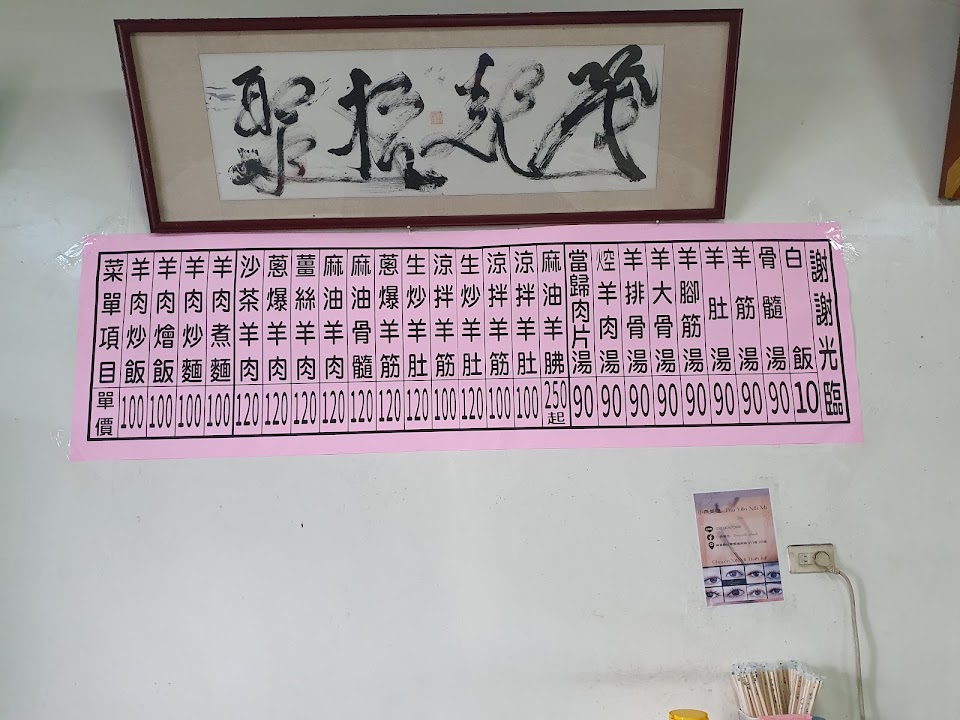 菜單項目 單價
羊肉炒飯 100
羊肉燴飯 100
羊肉炒麵 100
羊肉煮麵 100
沙茶羊肉 120
蔥爆羊肉 120
薑絲羊肉 120
麻油羊肉 120
麻油骨髓 120
蔥爆羊筋 120
生炒羊肚 120
涼拌羊筋 100
生炒羊肚 120
涼拌羊筋 100
涼拌羊肚 100
麻油羊胇 250起
當歸肉片湯 90
焢羊肉湯 90
羊排骨湯 90
羊大骨湯 90
羊腳筋湯 90
羊肚湯 90
羊筋湯 90
骨髓湯 90
白飯 10
謝謝光臨